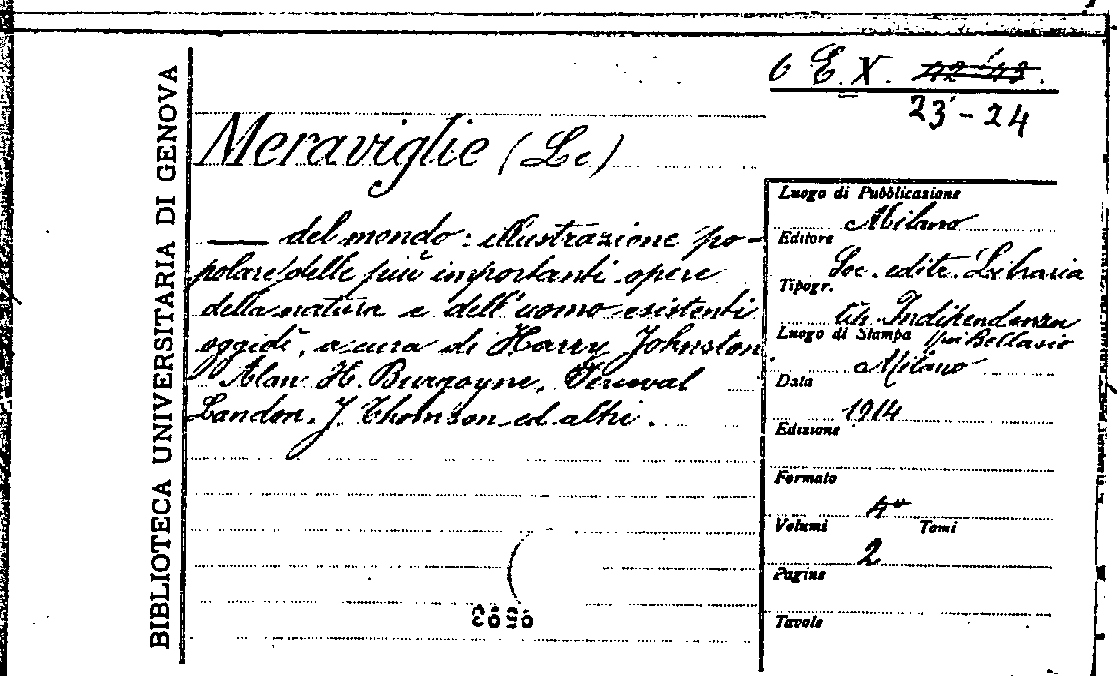 BIBLIOTECA UNIVERSITARIA DI GENOVA
6 E. X. 42-43.
23-24
Meraviglie (Le)
— del mondo: illustrazione po-
polare delle più importanti opere
della natura e dell'uomo esistenti
oggidì, a cura di Harry Johnston
Alan H. Burgoyne, Perceval
Landon, J. Thomson ed altri.
Luogo di Pubblicazione
Milano
Editore
Soc. editr. Libraria
Tipogr.
Indipendenza
Luogo di Stampa
Milano
Data
1914
Edizione
Formato
4°
Volumi Tomi
2
Pagine
Tavole